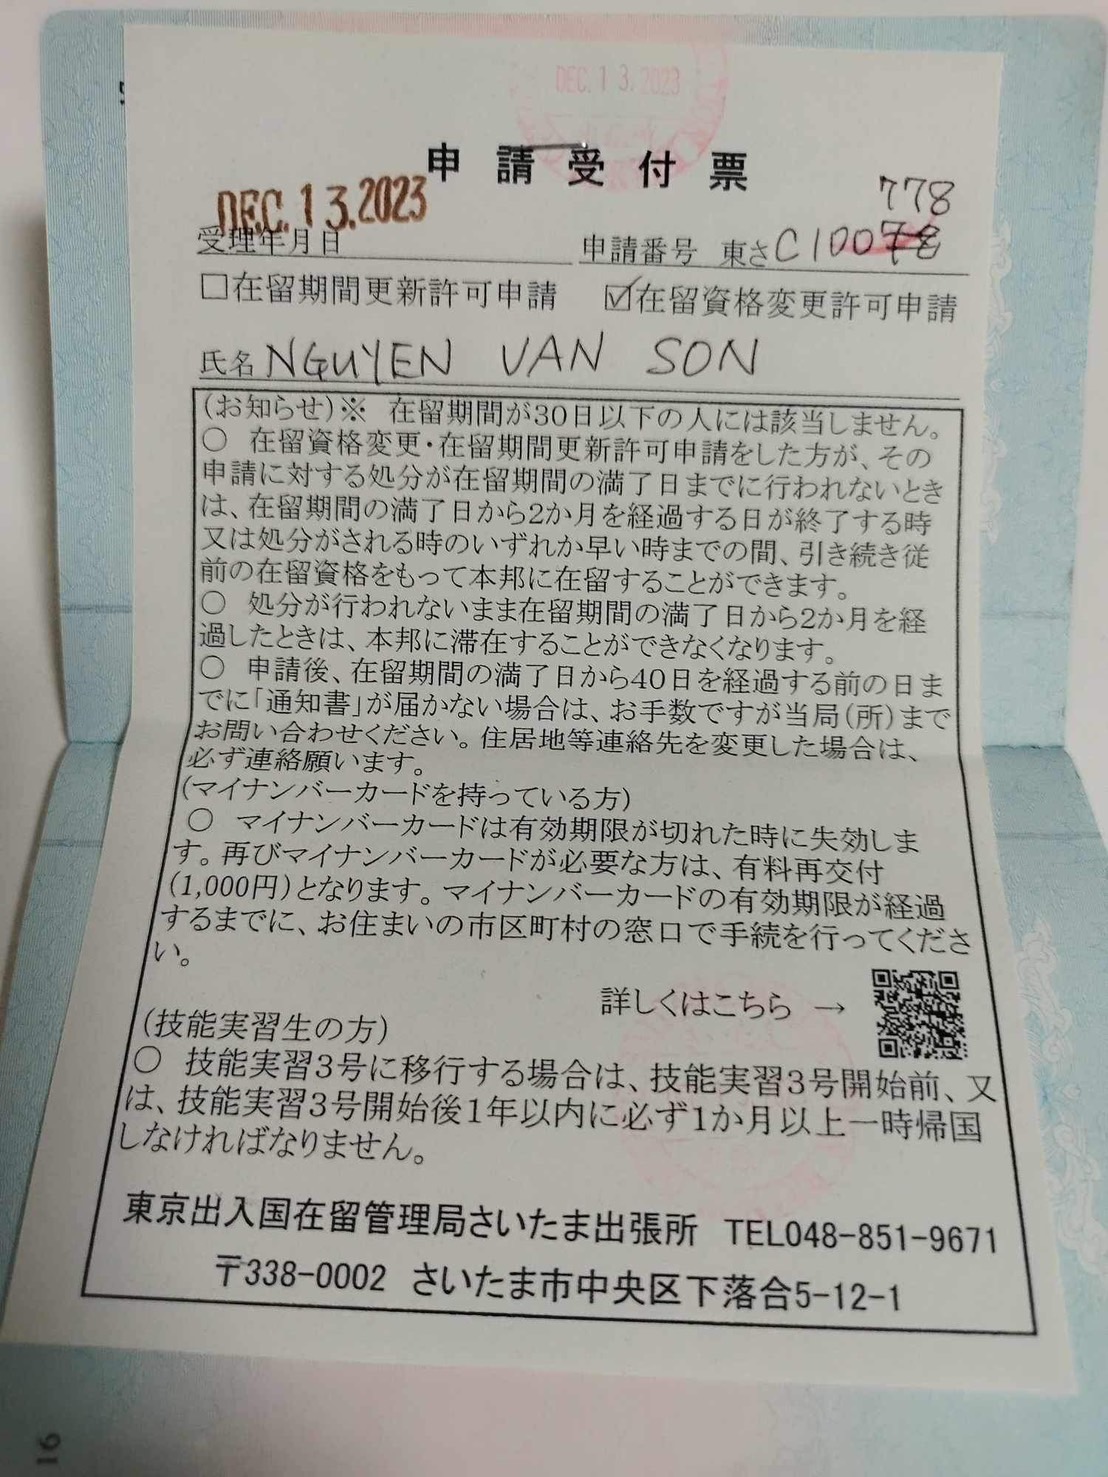 DEC. 13. 2023
申請受付票
DEC. 13. 2023
778
受理年月日
申請番号 東さC10078
□在留期間更新許可申請 ☑在留資格変更許可申請
氏名 NGUYEN VAN SON
(お知らせ)※ 在留期間が30日以下の人には該当しません。
○ 在留資格変更・在留期間更新許可申請をした方が、その
申請に対する処分が在留期間の満了日までに行われないとき
は、在留期間の満了日から2か月を経過する日が終了する時
又は処分がされる時のいずれか早い時までの間、引き続き従
前の在留資格をもって本邦に在留することができます。
○ 処分が行われないまま在留期間の満了日から2か月を経
過したときは、本邦に滞在することができなくなります。
○ 申請後、在留期間の満了日から40日を経過する前の日ま
でに「通知書」が届かない場合は、お手数ですが当局(所)まで
お問い合わせください。住居地等連絡先を変更した場合は、
必ず連絡願います。
(マイナンバーカードを持っている方)
○ マイナンバーカードは有効期限が切れた時に失効しま
す。再びマイナンバーカードが必要な方は、有料再交付
(1,000円)となります。マイナンバーカードの有効期限が経過
するまでに、お住まいの市区町村の窓口で手続を行ってくださ
い。
詳しくはこちら →
(技能実習生の方)
○ 技能実習3号に移行する場合は、技能実習3号開始前、又
は、技能実習3号開始後1年以内に必ず1か月以上一時帰国
しなければなりません。
東京出入国在留管理局さいたま出張所 TEL048-851-9671
〒338-0002 さいたま市中央区下落合5-12-1
16